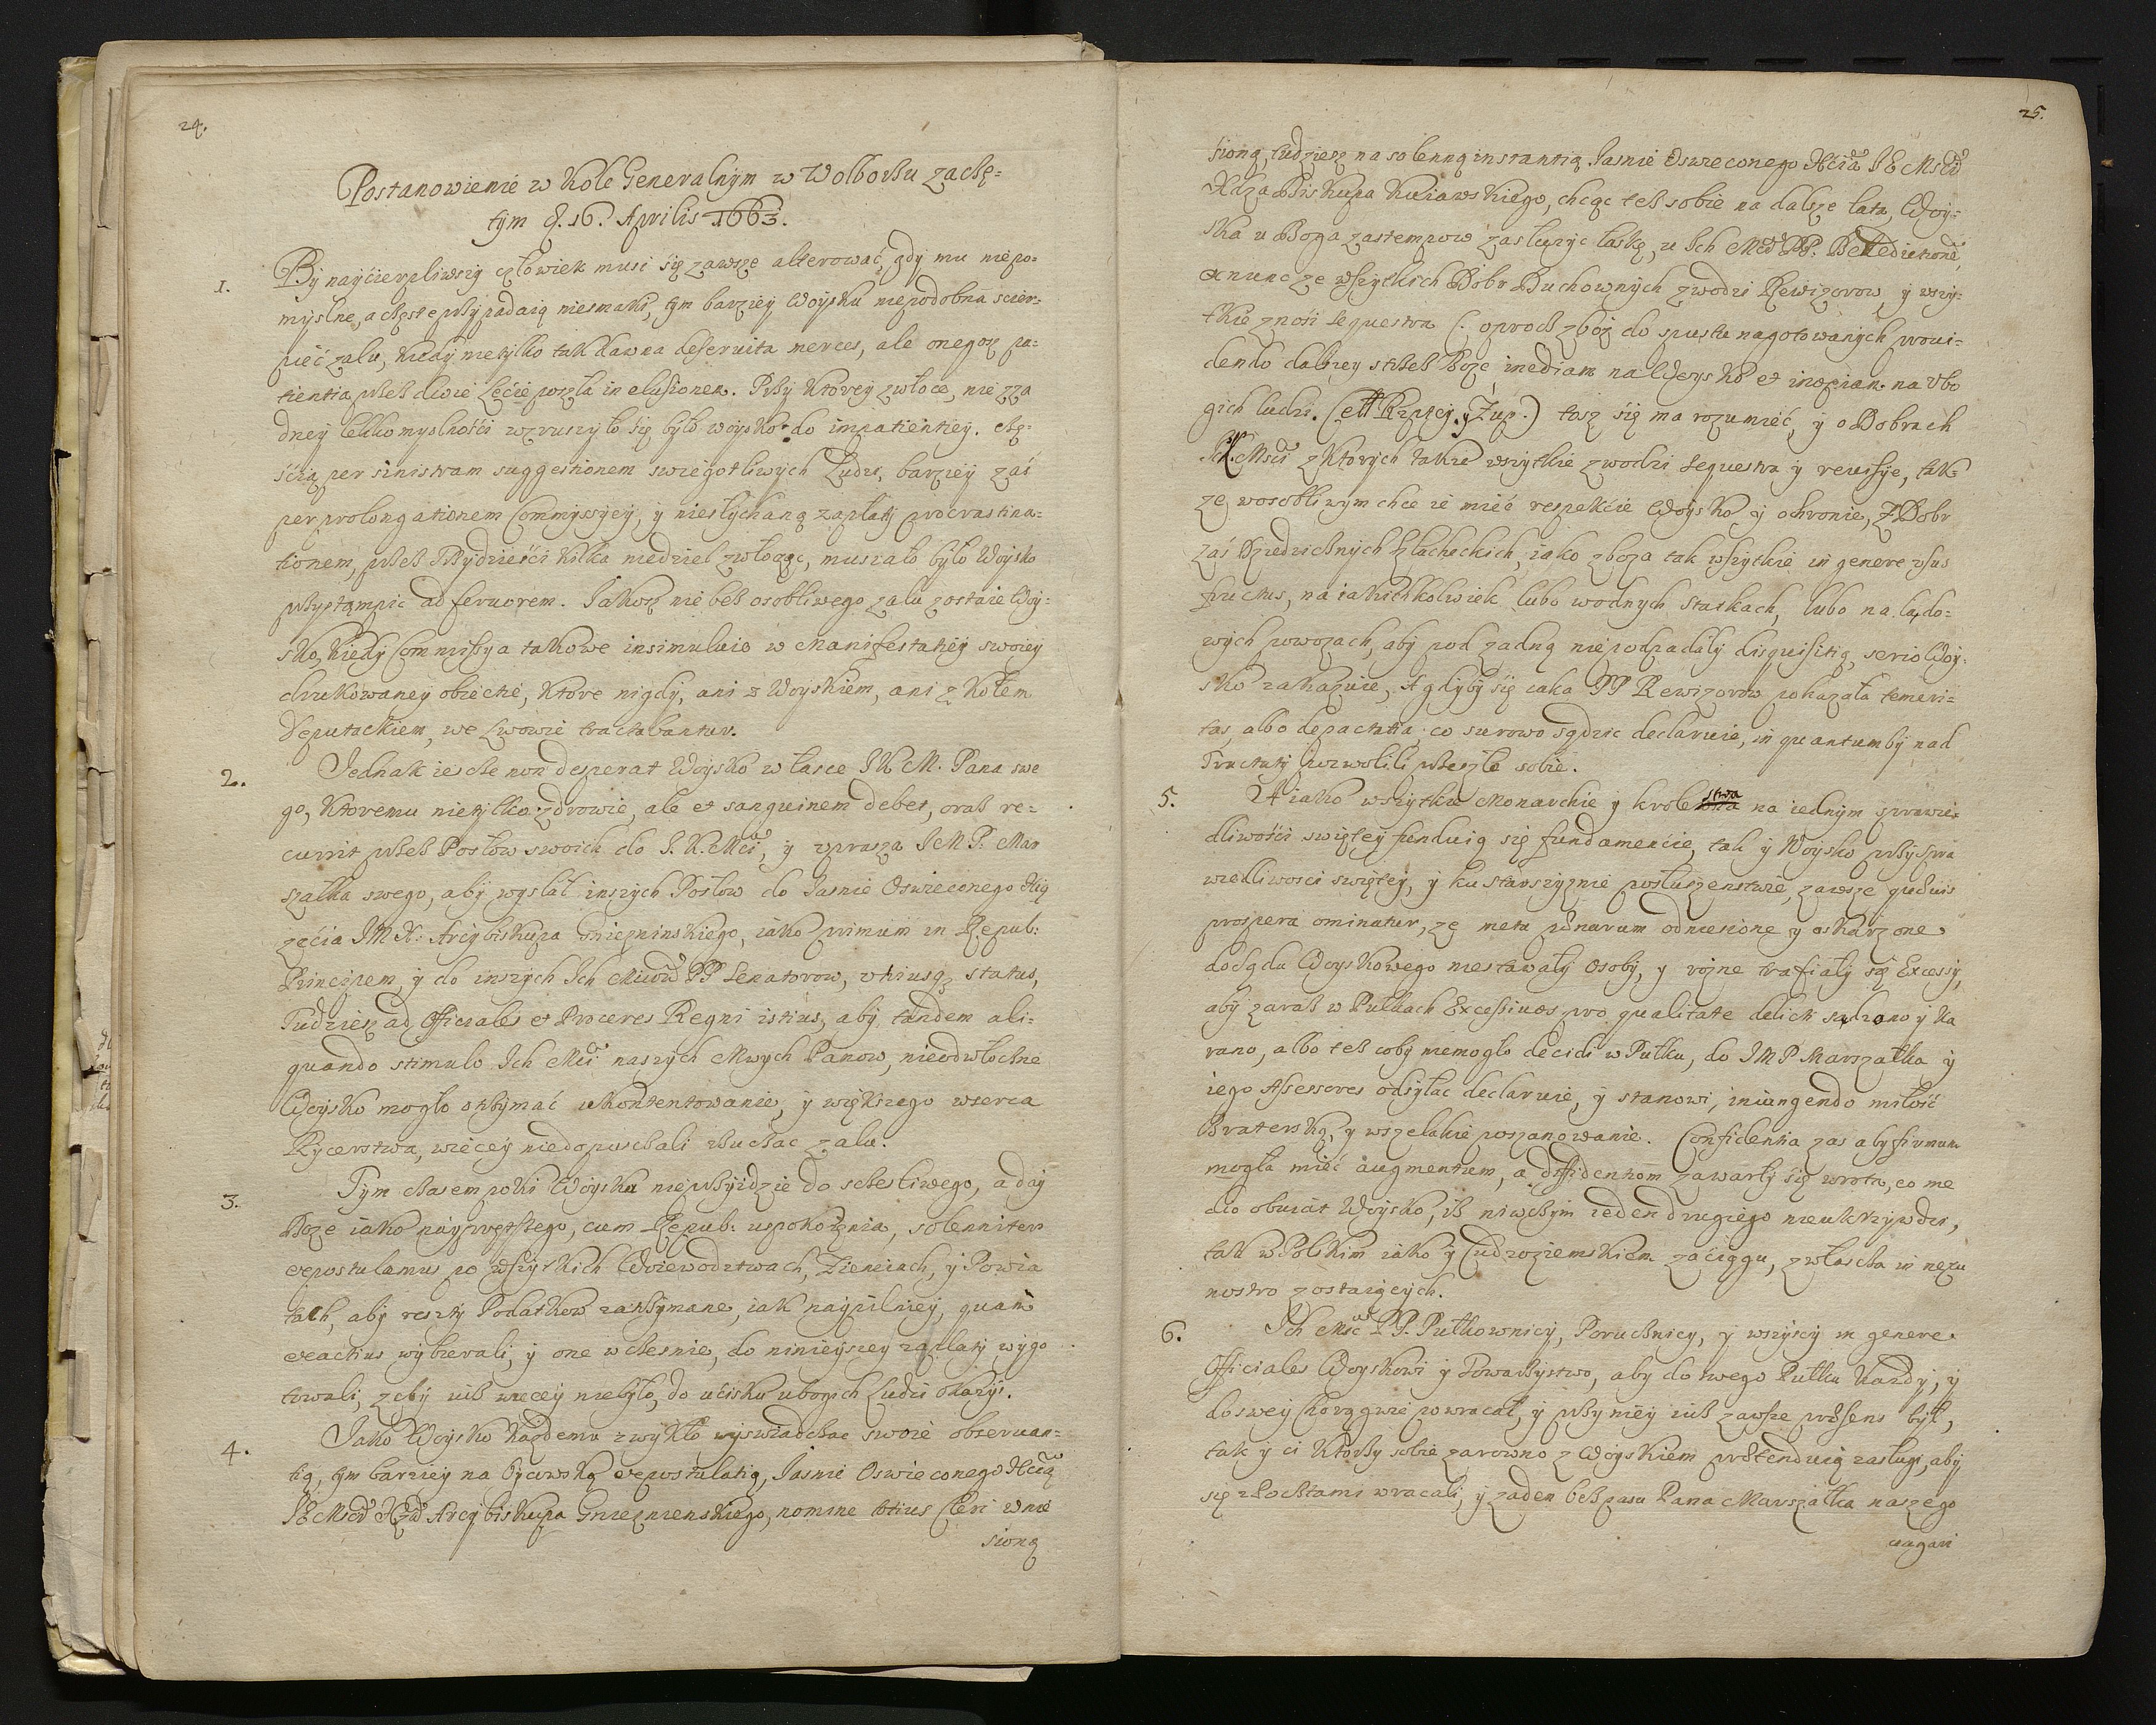 24.
Postanowienie w Kole Generalnym w Wolborzu zaczę-
tym d. 16. Aprilis 1663.
1. By nayćierpliwszy człowiek musi się zawsze alterować, gdy mu niepo-
myslne, a częste przypadaią niesmaki, tym barziey Woysku niepodobna scier-
pieć zalu, kiedy nietylko tak dawna deservita merces, ale onegosz pa-
tientia przez dwie lećie poszła in elusionem. Przy ktorey zwłoce, nie zza
dney lekkomyslnośći wzruszyło się było woysko do impatientiey. Czę-
śćią per sinistram suggestionem swiegotliwych Ludzi, barziey zaś
per prolongationem Commyssyey, y niesłychaną zapłaty procrastina-
tionem, przez Trzydzieśći kilka niedziel zwłocząc, musiało było Woysko
przystąmpic ad fervorem. Jakosz nie bez osobliwego zalu zostaie Woy-
sko, kiedy Commissya takowe insimuluie w Manifestatiey swoiey
drukowaney obiectie, ktore nigdy, ani z Woyskiem, ani z Kołem
Deputackiem, we Lwowie tractabantur.
2. Jednak ieszcze non desperat Woysko w łasce J K M. Pana swe
go, ktoremu nietylko zdrowie, ale et sanguinem debet, oraz re-
currit przez Posłow swoich do J. K. Mci, y uprasza J M P. Mar
szałka swego, aby wysłał inszych Posłow do Jasnie Oswieconego Xią
zęćia J M X: Arcybiskupa Gnieznienskiego, iako primum in Repub:
Principem, y do inszych Ich Mciow PP Senatorow, utriusq; status,
Tudziesz ad Officiales et Proceres Regni istius, aby tandem ali-
quando stimulo Ich Mci naszych Mwych Panow, nieodwłoczne
Woysko mogło otrzymać ukontentowanie, y większego w serca
Rycerstwa, więcey niedopuszczali wluczac zalu.
3. Tym czasem poki Woysku nieprzyidzie do szczesliwego, a day
Boze iako nayprętszego, cum Repub: uspokoienia, solenniter
expostulamus po wszytkich Woiewodztwach, Ziemiach, y Powia
tach, aby reszty Podatkow zatrzymane, iak naypilniey, quam
exactius wybierali, y one wczesnie, do ninieyszey zapłaty wygo
towali, zeby iusz więcey niebyło, do ućisku ubogich Ludzi okazyi.
4. Jako Woysko kazdemu zwykło wyswiadczac swoie observan-
tią, tym barziey na Oycowską expostulatią, Jasnie Oswieconego Xcia
JE Mści Xdza Arcybiskupa Gnieznienskiego, nomine totius Cleri wnie
sioną
25.
sioną, tudziesz na solenną instantią Jasnie Oswieconego Xcia JE Mści
Xdza Biskupa Kuiawskiego, chcąc tesz sobie na dalsze lata, Woy-
ska u Boga zastempow zasłuzyc łaskę, u Ich Mciow PP. Benedictione,
ex nunc ze wszytkich Dobr Duchownych zwodzi Rewizorow, y wszy-
tkie znosi sequestra (: oprocz zboz do spustu nagotowanych provi-
dendo dalszey strzesz Boze inediam na Woysko et inopiam na Ubo
gich ludzi. (ett Rzptey. y Zup.) tosz się ma rozumieć, y o Dobrach
JK. Msci z ktorych takze wszytkie zwodzi sequestra y revisye, tak-
ze w osobliwym chce ie mieć respekćie Woysko y ochronie, Z Dobr
zaś Dziedzicznych Szlacheckich, iako zboza tak wszytkie in genere usus
fructus, na iakichkolwiek lubo wodnych statkach, lubo na lądo-
wych powozach, aby pod zadną niepodpadały disquisitią, serio Woy-
sko zakazuie, A gdyby się iaka PP Rewizorow pokazała temeri-
tas, albo depactatia, co surowo sądzic declaruie, in quantum by nad
Tructaty pozwolili przeszłe sobie.
5. A iako wszytkie Monarchie y krolestwa na iednym sprawie-
dliwośći swiętey funduią się fundamenćie, tak y Woysko przy spra
wiedliwosci swiętey, y ku starszyznie posłuszenstwie, zawsze quaevis
prospera ominatur, ze metu poenarum odniesione y oskarzone
do Sądu Woyskowego niestawały osoby, y rozne trafiały się Excessy,
aby zaraz w Pułkach Excessivos pro qualitate delicti sądzono y ka
rano, albo tesz coby niemogło decidi w Pułku, do J M P Marszałka y
iego Assessores odsyłac declaruie, y stanowi, iniungendo miłość
Braterską, y wszelakie poszanowanie. Confidentia zas aby firmum
mogła mieć augmentum, a diffidentiom zawarły się wrota, co me
dio obwiat Woysko, isz niwczym ieden drugiego nieukrzywdzi,
tak w Polskim iako y Cudzoziemskiem zaćiągu, zwłaszcza in nexu
nostro zostaiących.
6. Ich Mśc PP. Pułkownicy, Porucznicy, y wszyscy in genere
Officiales Woyskowi y Towarzystwo, aby do swego Pułku kazdy, y
do swey Chorągwie powracał, y przy niey iusz zawsze praesens był,
tak y ci ktorzy sobie zarowno z Woyskiem praetenduią zasługi, aby
się z Pocztami wracali, y zaden bez pasu Pana Marszałka naszego
vagari